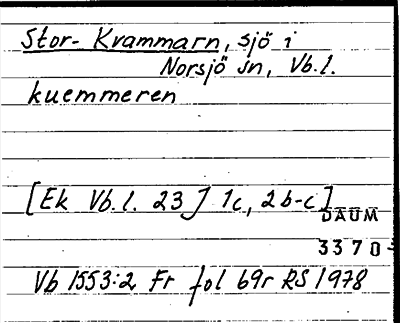 Stor- Kvammarn, sjö i
Norsjö sn, Vb.l.
kuemmeren
[Ek Vb.l. 23 J 1c, 2b-c]
DAUM
3370
Vb 1553:2 Fr fol 69r RS 1978